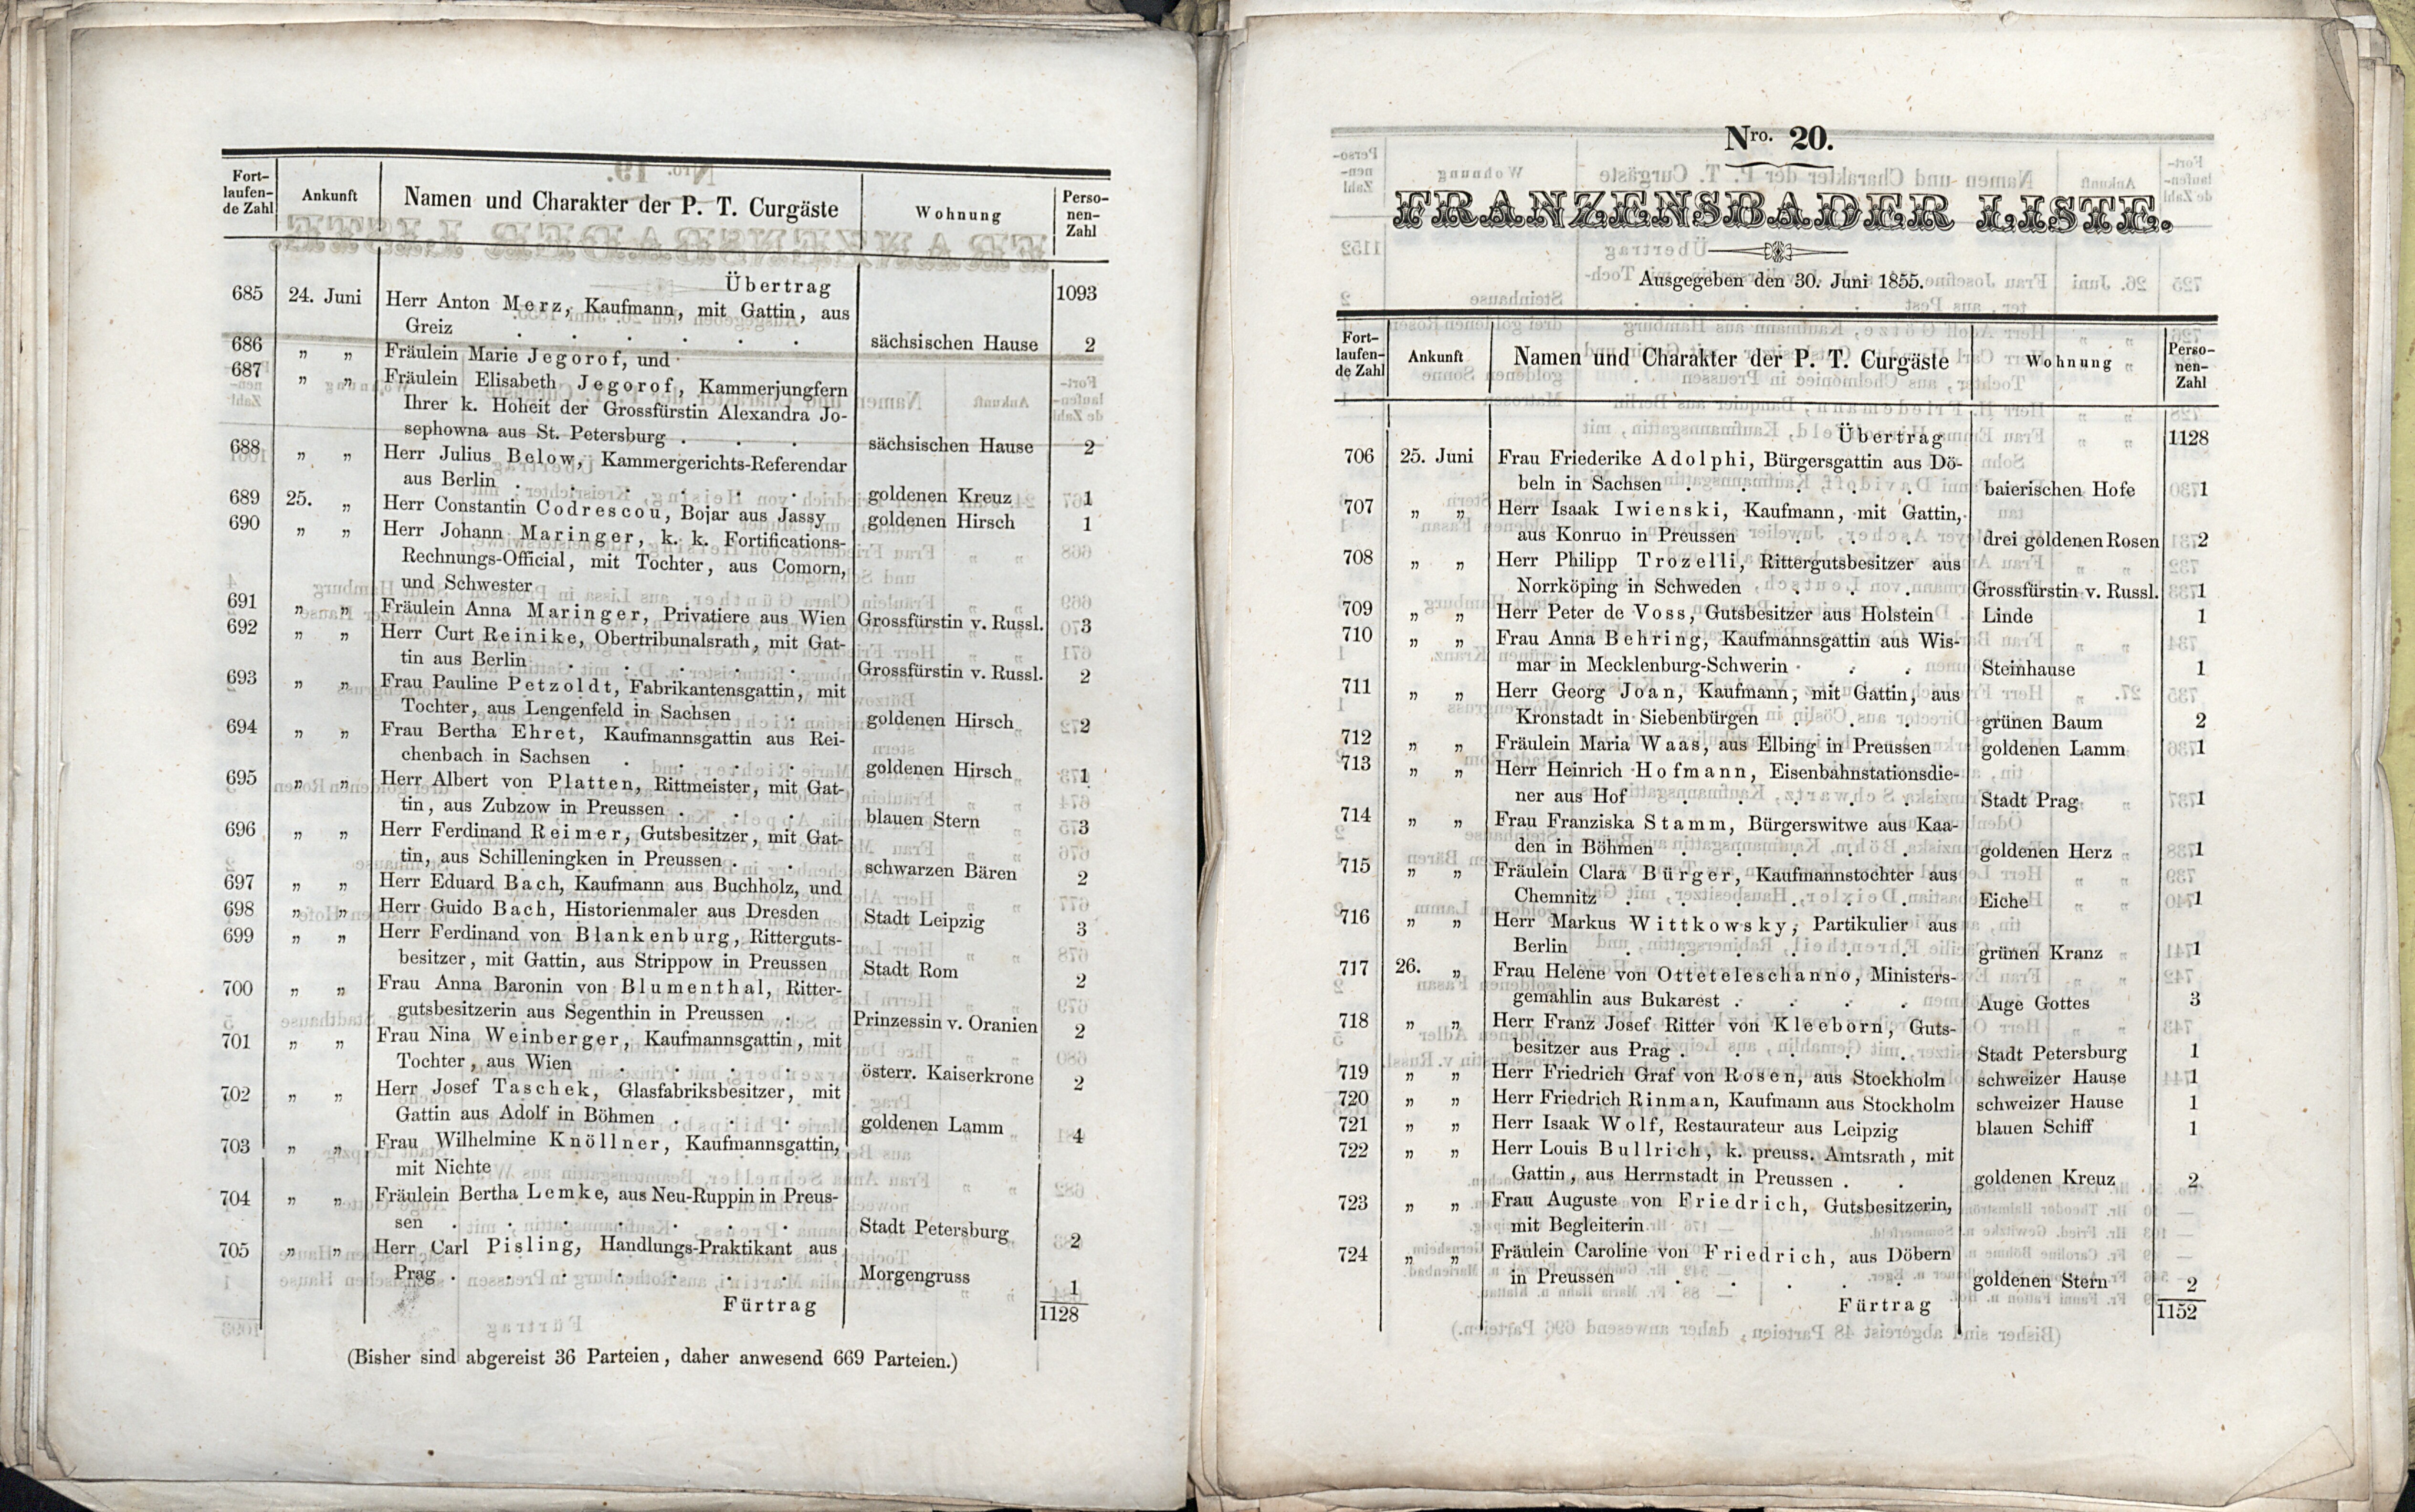 Fort-
laufen-
de Zahl
Ankunft
Namen und Charakter der P. T. Curgäste
Wohnung
Perso-
nen-
Zahl
Übertrag 1093
685 24. Juni Herr Anton Merz, Kaufmann, mit Gattin, aus
Greiz . . . . . . sächsischen Hause 2
686 „ „ Fräulein Marie Jegorof, und
687 „ „ Fräulein Elisabeth Jegorof, Kammerjungfern
Ihrer k. Hoheit der Grossfürstin Alexandra Jo-
sephowna aus St. Petersburg . . . sächsischen Hause 2
688 „ „ Herr Julius Below, Kammergerichts-Referendar
aus Berlin . . . . . . goldenen Kreuz 1
689 25. „ Herr Constantin Codrescou, Bojar aus Jassy goldenen Hirsch 1
690 „ „ Herr Johann Maringer, k. k. Fortifications-
Rechnungs-Official, mit Tochter, aus Comorn,
und Schwester
691 „ „ Fräulein Anna Maringer, Privatiere aus Wien Grossfürstin v. Russl. 3
692 „ „ Herr Curt Reinike, Obertribunalsrath, mit Gat-
tin aus Berlin . . . . . Grossfürstin v. Russl. 2
693 „ „ Frau Pauline Petzoldt, Fabrikantensgattin, mit
Tochter, aus Lengenfeld in Sachsen . goldenen Hirsch 2
694 „ „ Frau Bertha Ehret, Kaufmannsgattin aus Rei-
chenbach in Sachsen . . . . goldenen Hirsch 1
695 „ „ Herr Albert von Platten, Rittmeister, mit Gat-
tin, aus Zubzow in Preussen . . . blauen Stern 3
696 „ „ Herr Ferdinand Reimer, Gutsbesitzer, mit Gat-
tin, aus Schilleningken in Preussen . . schwarzen Bären 2
697 „ „ Herr Eduard Bach, Kaufmann aus Buchholz, und
698 „ „ Herr Guido Bach, Historienmaler aus Dresden Stadt Leipzig 3
699 „ „ Herr Ferdinand von Blankenburg, Ritterguts-
besitzer, mit Gattin, aus Strippow in Preussen Stadt Rom 2
700 „ „ Frau Anna Baronin von Blumenthal, Ritter-
gutsbesitzerin aus Segenthin in Preussen . Prinzessin v. Oranien 2
701 „ „ Frau Nina Weinberger, Kaufmannsgattin, mit
Tochter, aus Wien . . . . österr. Kaiserkrone 2
702 „ „ Herr Josef Taschek, Glasfabriksbesitzer, mit
Gattin aus Adolf in Böhmen . . . goldenen Lamm 4
703 „ „ Frau Wilhelmine Knöllner, Kaufmannsgattin,
mit Nichte
704 „ „ Fräulein Bertha Lemke, aus Neu-Ruppin in Preus-
sen . . . . . . . Stadt Petersburg 2
705 „ „ Herr Carl Pisling, Handlungs-Praktikant aus
Prag . . . . . . . Morgengruss 1
Fürtrag 1128
(Bisher sind abgereist 36 Parteien, daher anwesend 669 Parteien.)
Nro. 20.
FRANZENSBADER LISTE.
Ausgegeben den 30. Juni 1855.
Fort-
laufen-
de Zahl
Ankunft
Namen und Charakter der P. T. Curgäste
Wohnung
Perso-
nen-
Zahl
Übertrag 1128
706 25. Juni Frau Friederike Adolphi, Bürgersgattin aus Dö-
beln in Sachsen . . . . . baierischen Hofe 1
707 „ „ Herr Isaak Iwienski, Kaufmann, mit Gattin,
aus Konruo in Preussen . . . drei goldenen Rosen 2
708 „ „ Herr Philipp Trozelli, Rittergutsbesitzer aus
Norrköping in Schweden . . . Grossfürstin v. Russl. 1
709 „ „ Herr Peter de Voss, Gutsbesitzer aus Holstein Linde 1
710 „ „ Frau Anna Behring, Kaufmannsgattin aus Wis-
mar in Mecklenburg-Schwerin . . . Steinhause 1
711 „ „ Herr Georg Joan, Kaufmann, mit Gattin, aus
Kronstadt in Siebenbürgen . . . grünen Baum 2
712 „ „ Fräulein Maria Waas, aus Elbing in Preussen goldenen Lamm 1
713 „ „ Herr Heinrich Hofmann, Eisenbahnstationsdie-
ner aus Hof . . . . . Stadt Prag 1
714 „ „ Frau Franziska Stamm, Bürgerswitwe aus Kaa-
den in Böhmen . . . . . goldenen Herz 1
715 „ „ Fräulein Clara Bürger, Kaufmannstochter aus
Chemnitz . . . . . . Eiche 1
716 „ „ Herr Markus Wittkowsky, Partikulier aus
Berlin . . . . . . grünen Kranz 1
717 26. „ Frau Helene von Otteteleschanno, Ministers-
gemahlin aus Bukarest . . . . Auge Gottes 3
718 „ „ Herr Franz Josef Ritter von Kleeborn, Guts-
besitzer aus Prag . . . . . Stadt Petersburg 1
719 „ „ Herr Friedrich Graf von Rosen, aus Stockholm schweizer Hause 1
720 „ „ Herr Friedrich Rinman, Kaufmann aus Stockholm schweizer Hause 1
721 „ „ Herr Isaak Wolf, Restaurateur aus Leipzig blauen Schiff 1
722 „ „ Herr Louis Bullrich, k. preuss. Amtsrath, mit
Gattin, aus Herrnstadt in Preussen . . goldenen Kreuz 2
723 „ „ Frau Auguste von Friedrich, Gutsbesitzerin,
mit Begleiterin
724 „ „ Fräulein Caroline von Friedrich, aus Döbern
in Preussen . . . . . goldenen Stern 2
Fürtrag 1152